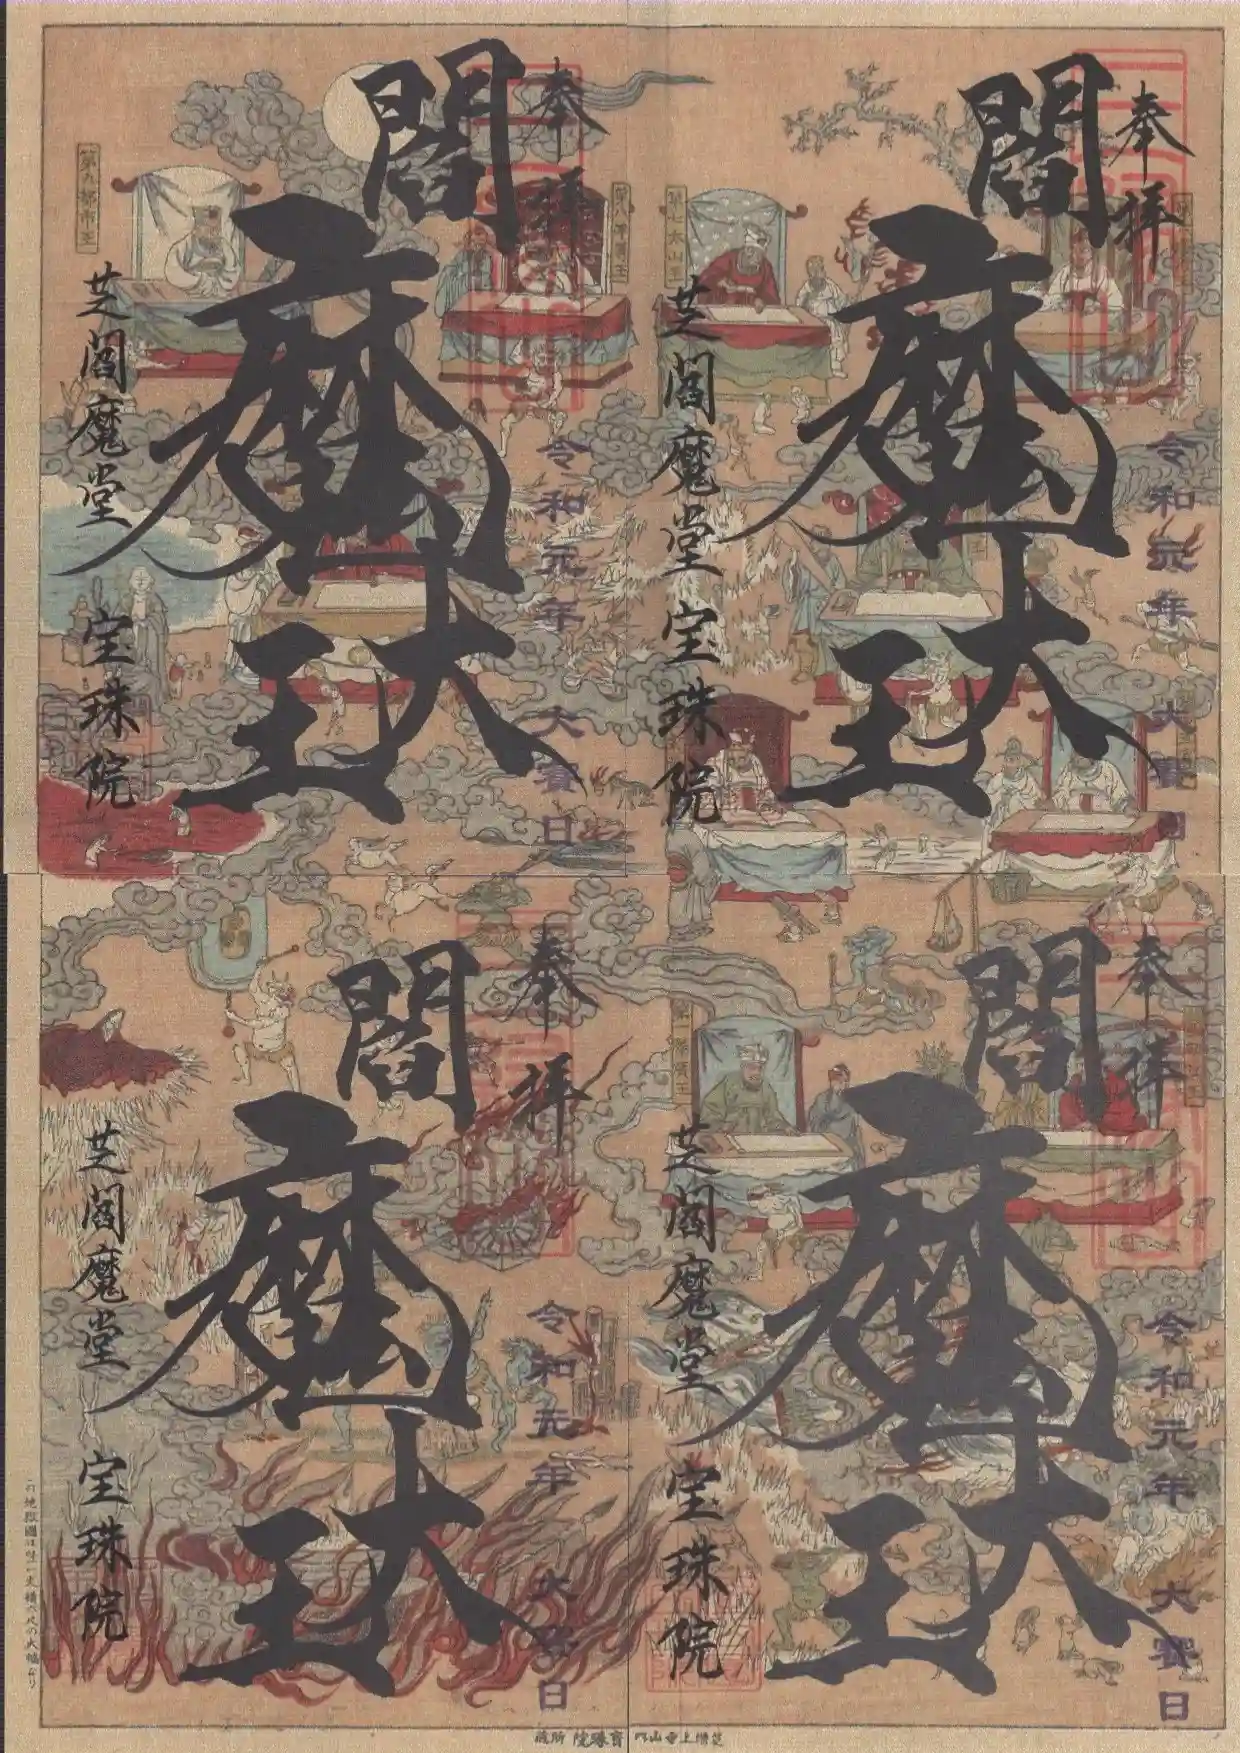 奉拝
閻魔大王
令和元年 大賽日
芝閻魔堂 宝珠院
第九都市王
第八平等王
奉拝
閻魔大王
令和元年 大賽日
芝閻魔堂 宝珠院
第七太山王
奉拝
閻魔大王
令和元年 大賽日
芝閻魔堂 宝珠院
奉拝
閻魔大王
令和元年 大賽日
芝閻魔堂 宝珠院
芝増上寺山内 寳珠院 所蔵